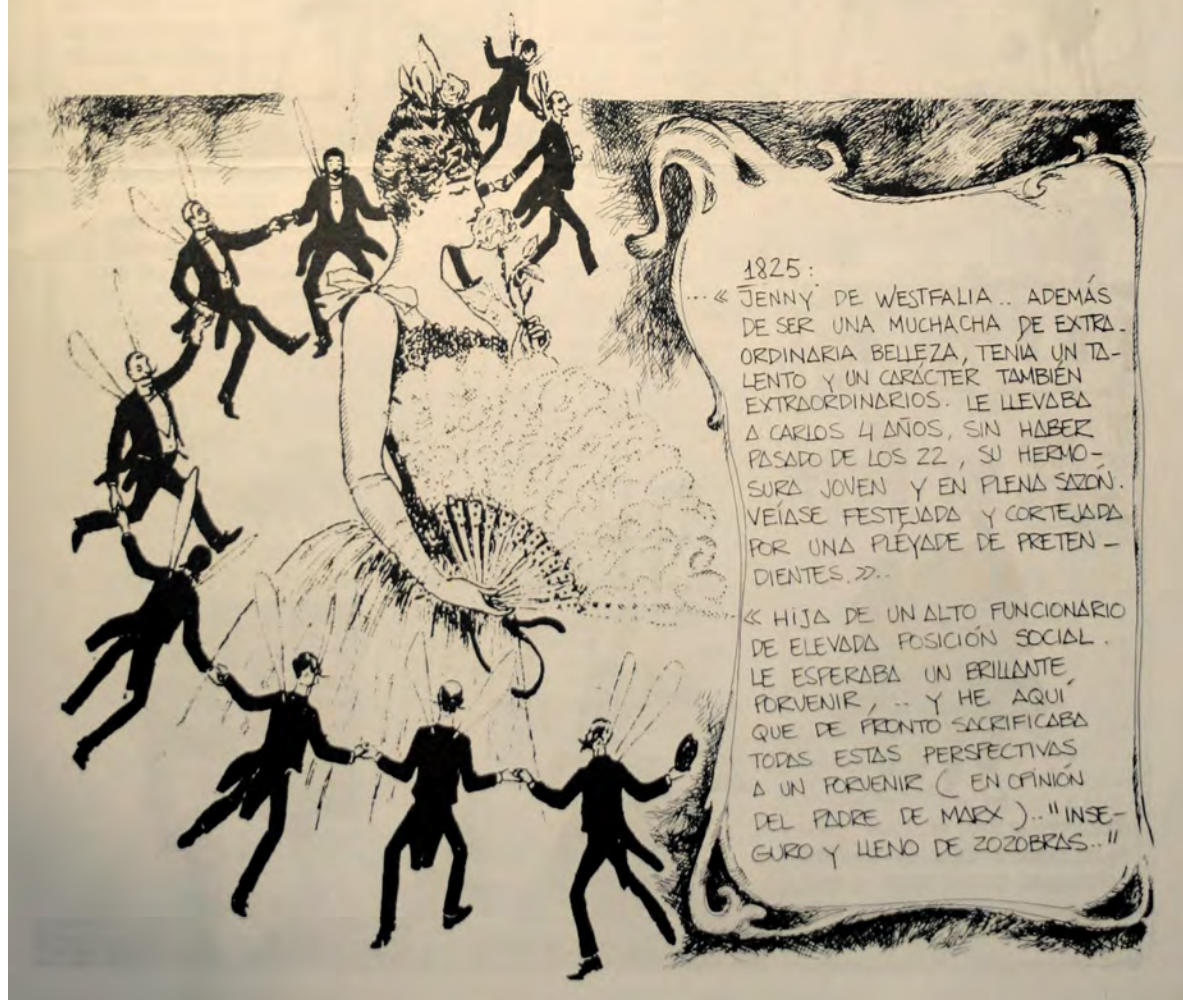 1825:
...« JENNY DE WESTFALIA.. ADEMÁS
DE SER UNA MUCHACHA DE EXTRA-
ORDINARIA BELLEZA, TENIA UN TA-
LENTO Y UN CARÁCTER TAMBIÉN
EXTRAORDINARIOS. LE LLEVABA
A CARLOS 4 AÑOS, SIN HABER
PASADO DE LOS 22, SU HERMO-
SURA JOVEN Y EN PLENA SAZÓN.
VEÍASE FESTEJADA Y CORTEJADA
POR UNA PLÉYADE DE PRETEN-
DIENTES.»..
« HIJA DE UN ALTO FUNCIONARIO
DE ELEVADA POSICIÓN SOCIAL.
LE ESPERABA UN BRILLANTE
PORVENIR, .. Y HE AQUÍ
QUE DE PRONTO SACRIFICABA
TODAS ESTAS PERSPECTIVAS
A UN PORVENIR ( EN OPINIÓN
DEL PADRE DE MARX ).. "INSE-
GURO Y LLENO DE ZOZOBRAS.."